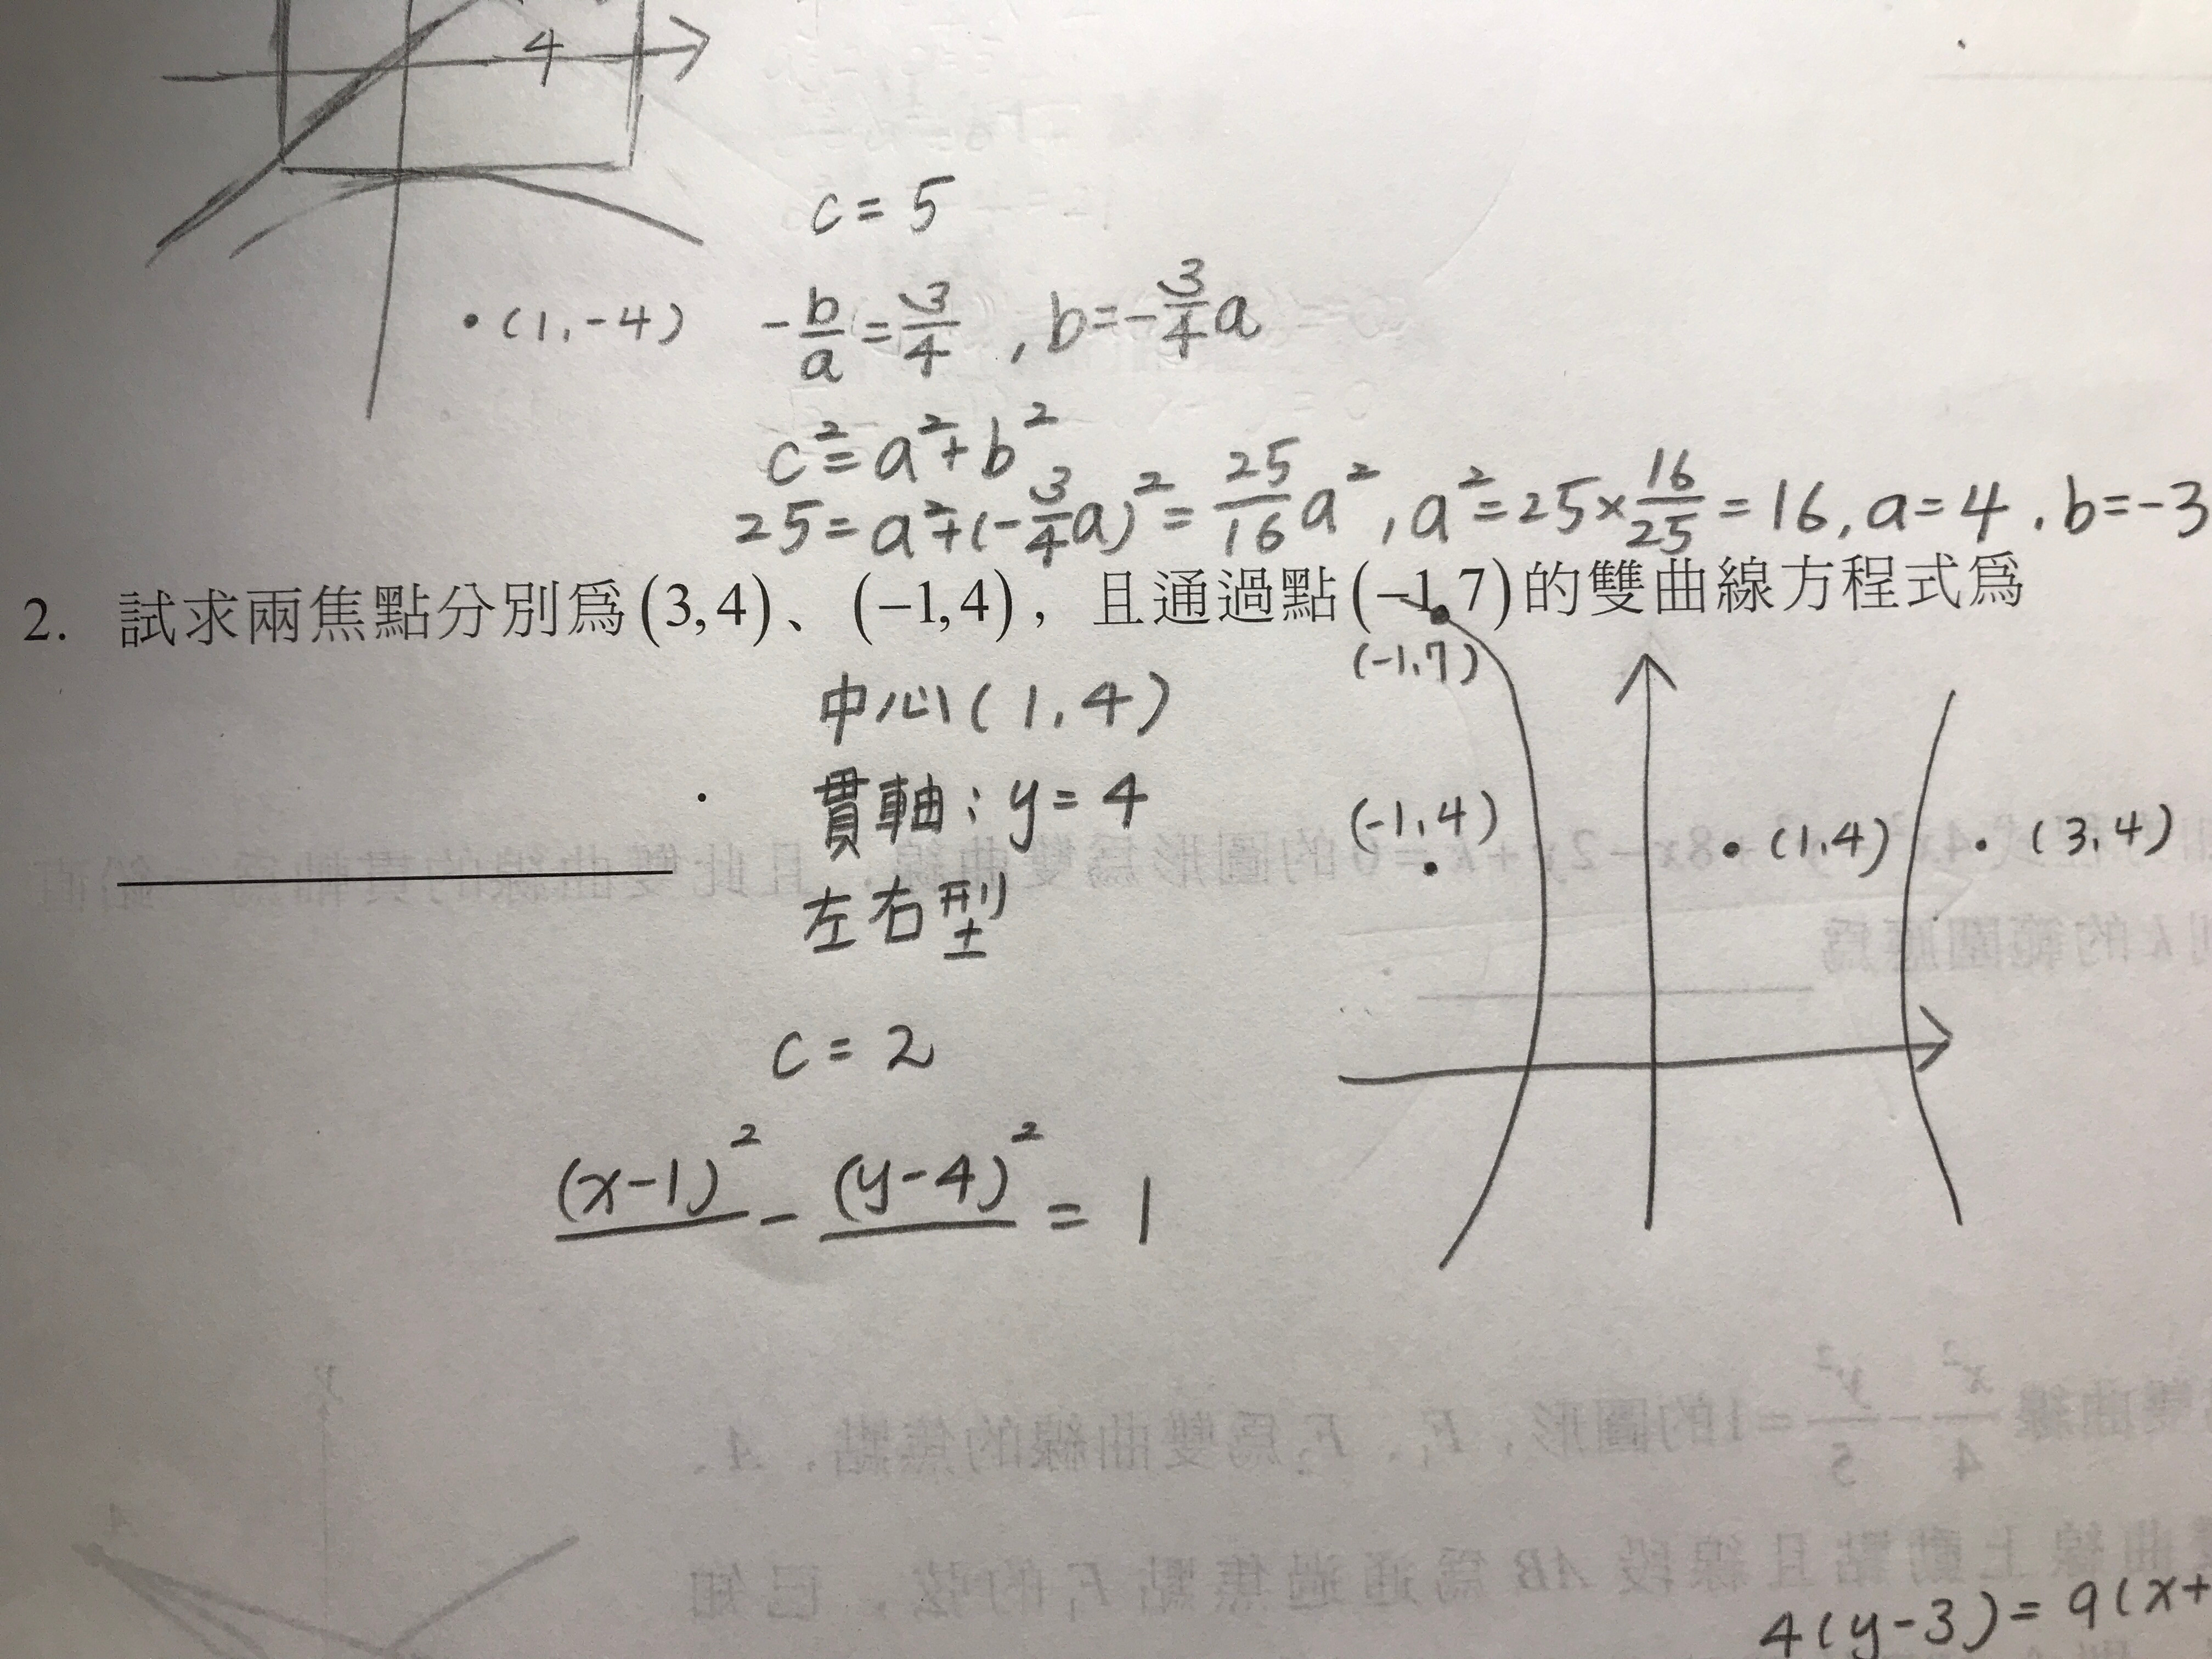 4
c = 5
•(1,-4)
-b/a = 3/4 , b=-3/4a
c²=a²+b²
25=a²+(-3/4a)²=25/16a² , a²=25×16/25=16, a=4 , b=-3
2. 試求兩焦點分別爲(3,4)、(−1,4)，且通過點(−1,7)的雙曲線方程式爲
(-1,7)
中心(1,4)
貫軸:y=4
左右型
(-1,4)
•(1,4)
•(3,4)
c=2
(x-1)² - (y-4)² = 1
4(y-3)=9(x+